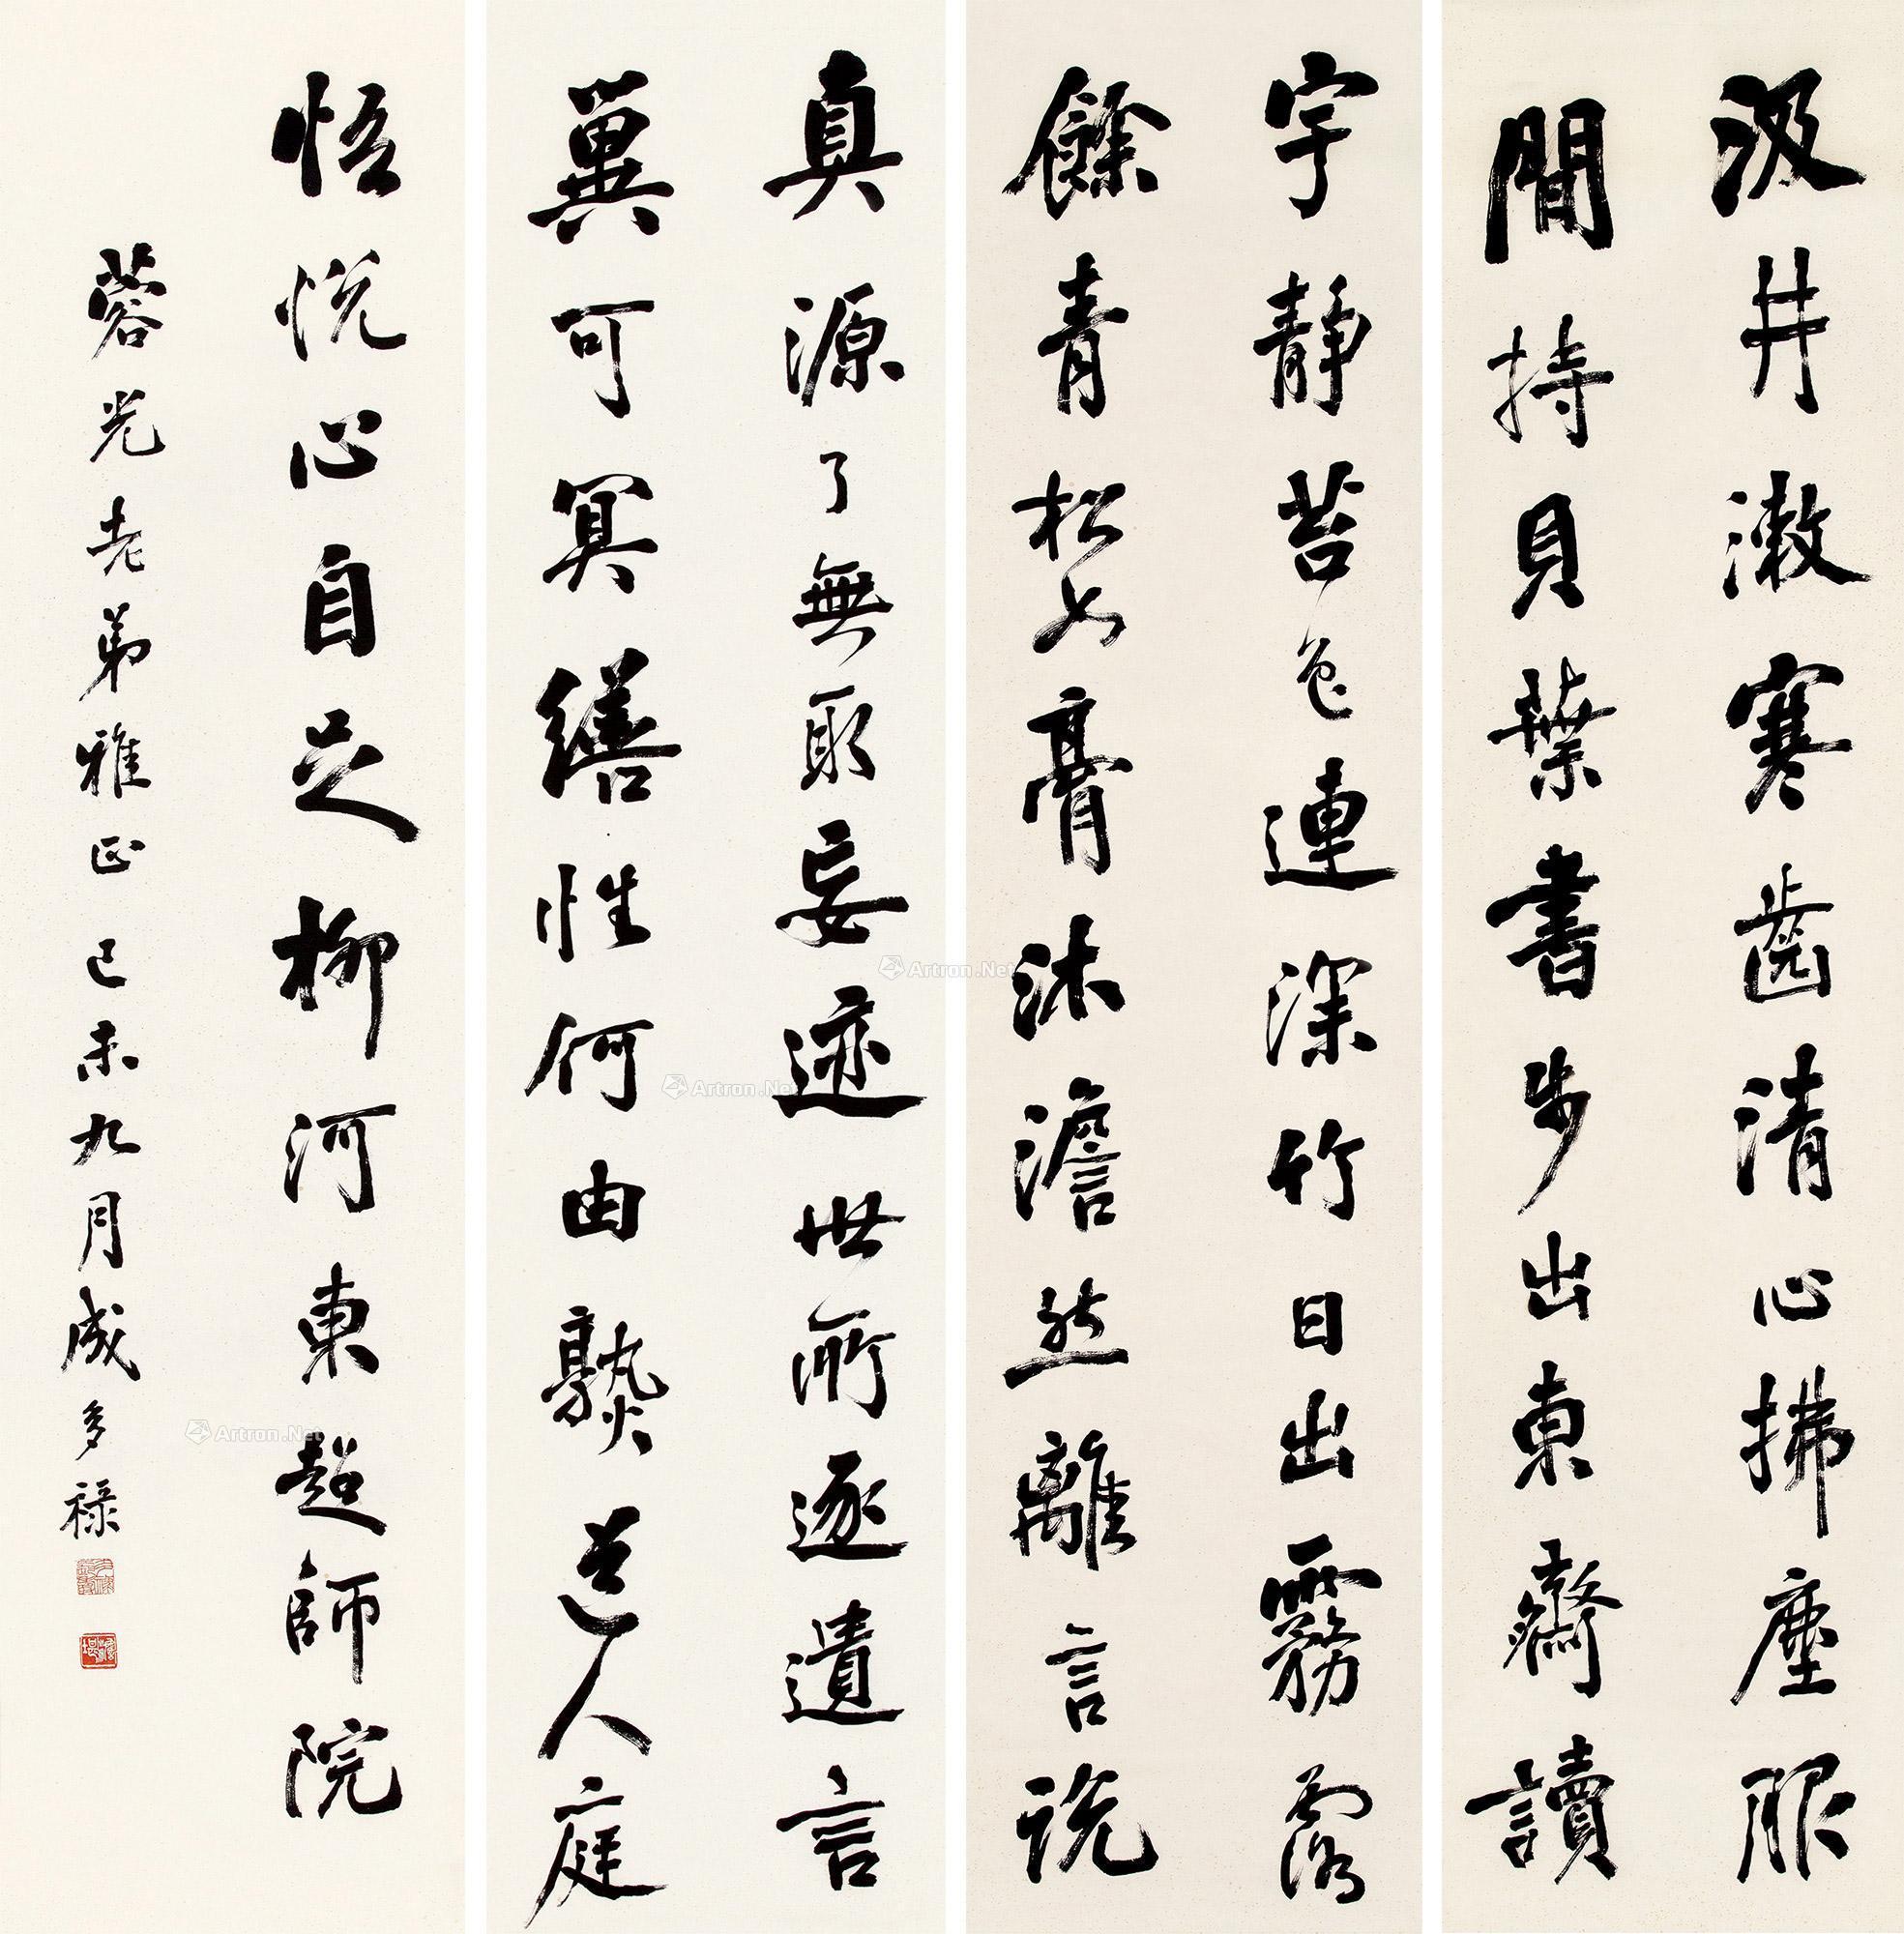 汲井漱寒齒清心拂塵服
閒持貝葉書步出東齋讀
真源了無取妄迹世所逐遺言
冀可冥繕性何由熟道人庭
宇靜苔色連深竹日出霧露
餘青松如膏沐澹然離言說
悟悅心自足柳河東超師院
蓉光老弟雅正己未九月成多祿
Artron.Net
Artron.Net
Artron.Net